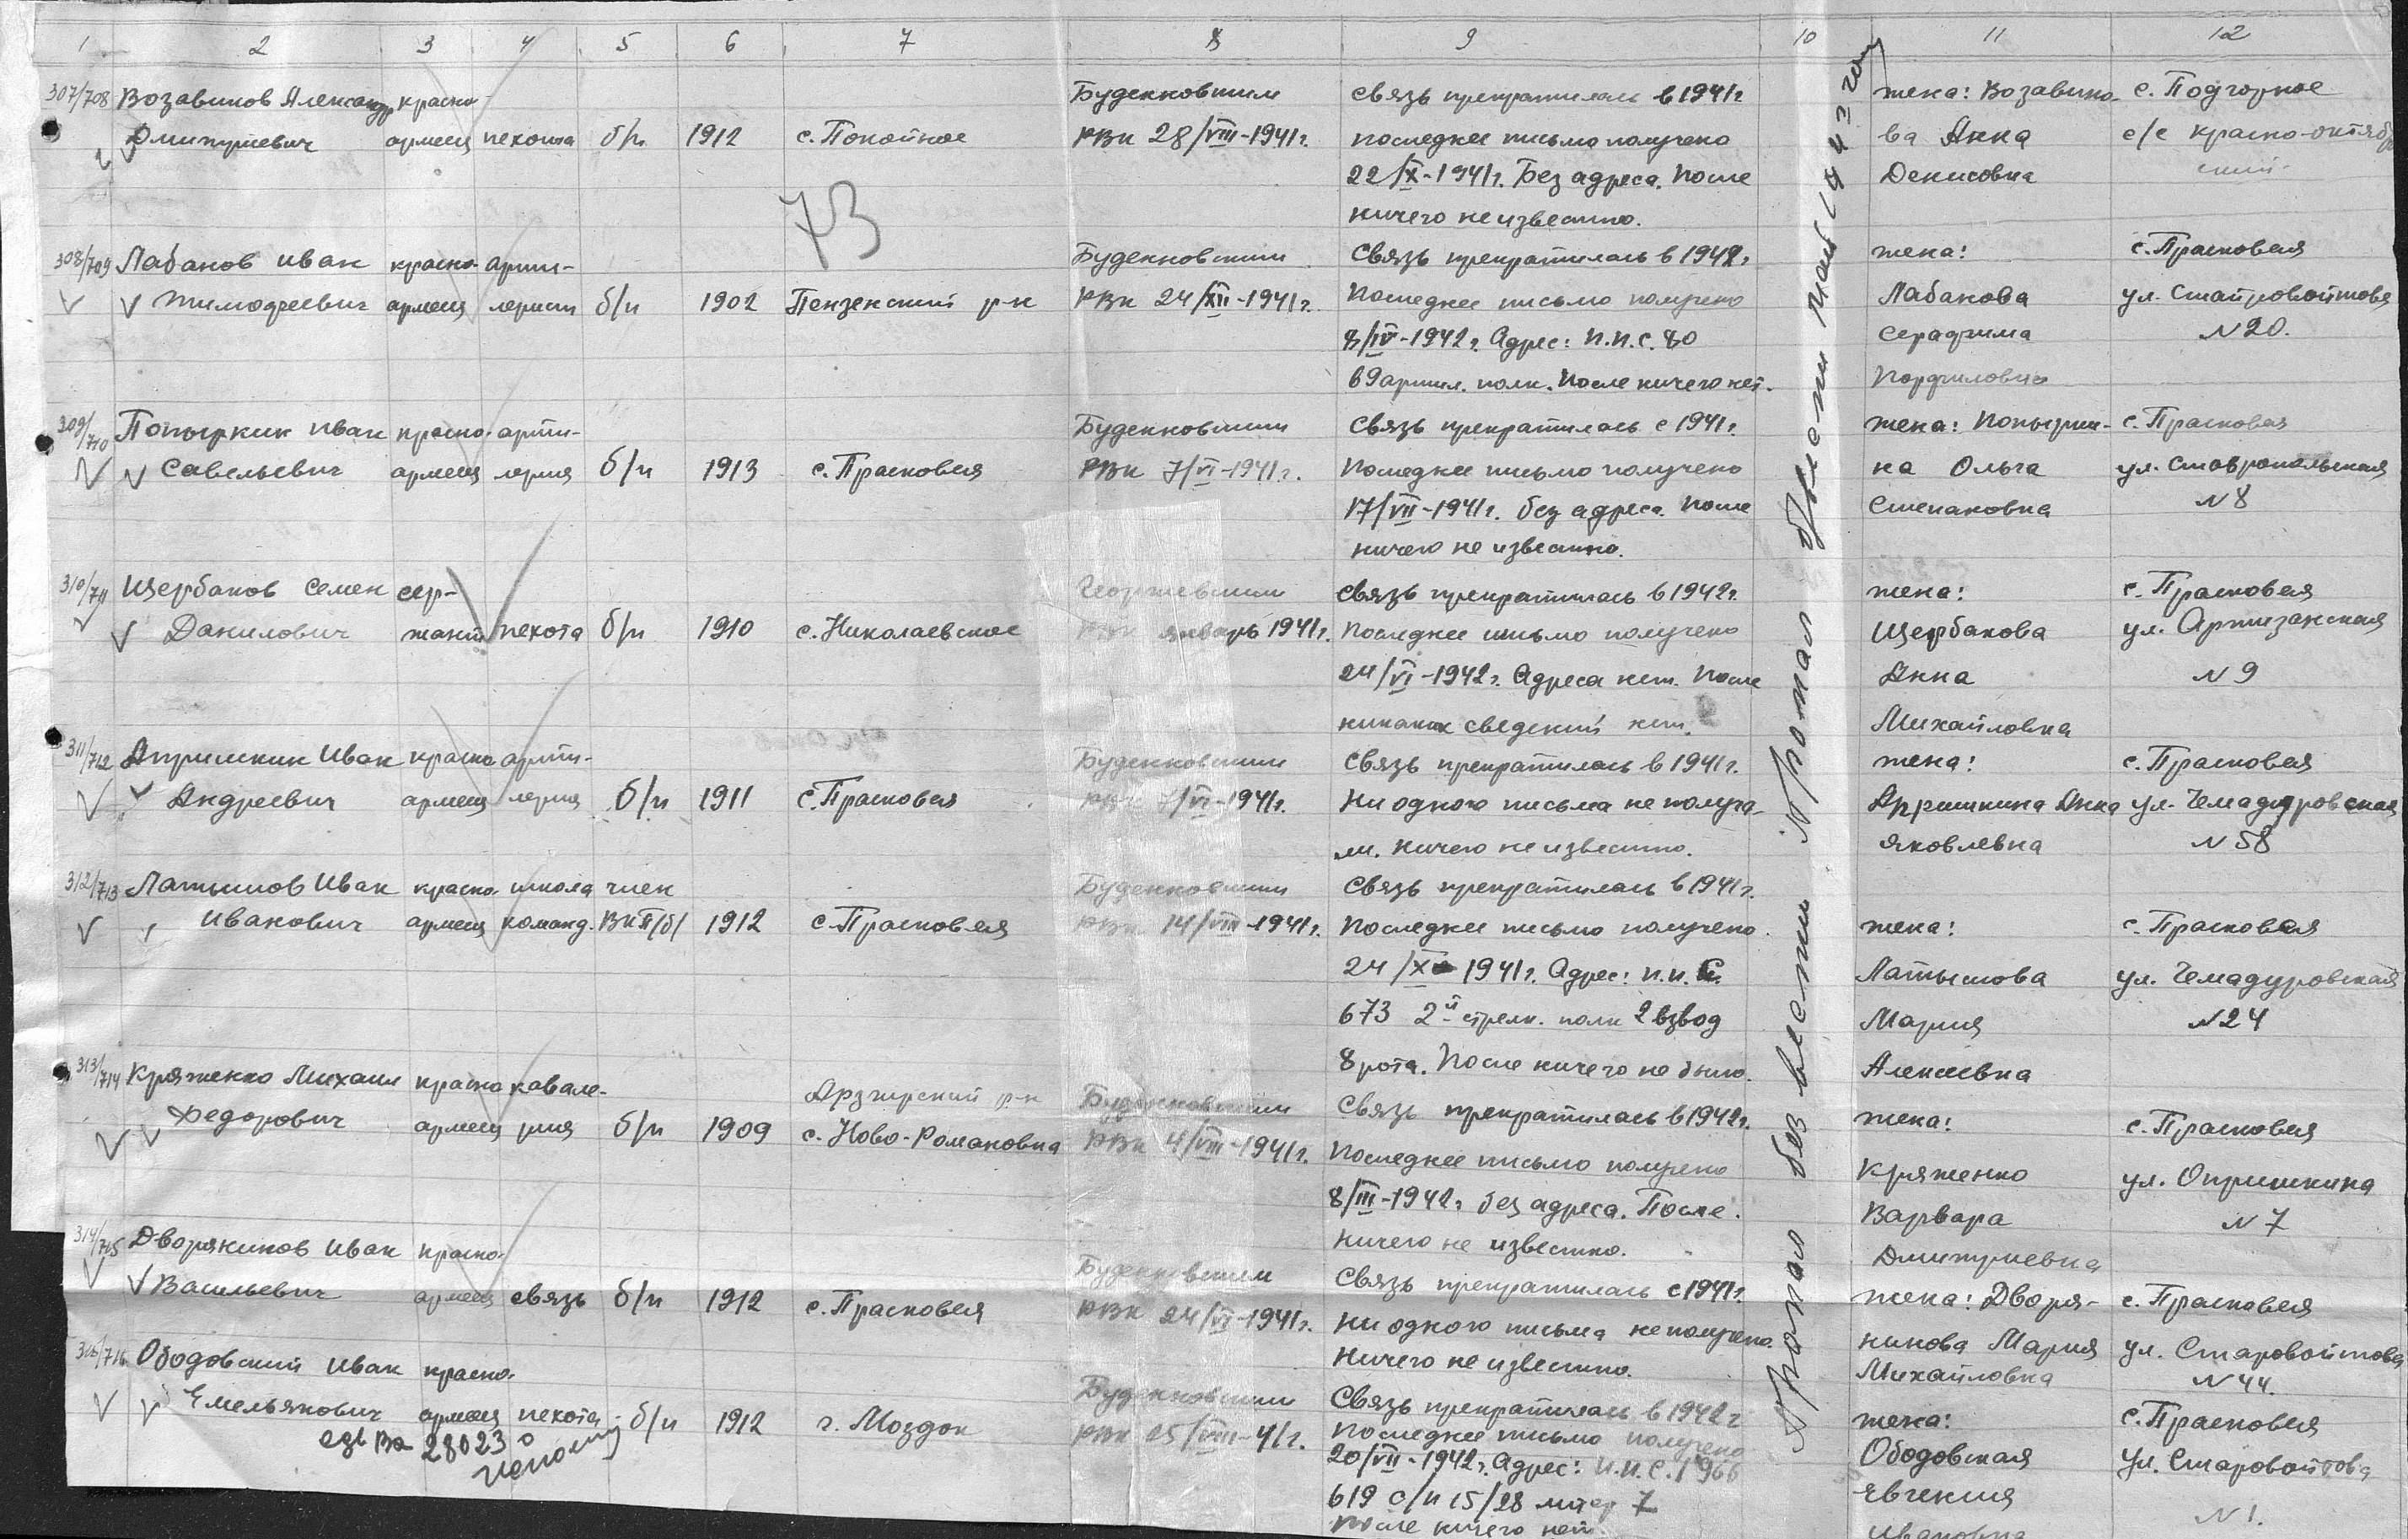 1 2 3 4 5 6 7 8 9 10 11 12
307/708 Возавиков Александр красно- Буденновским связь прекратилась в 1941г жена: Возавико- с. Подгорное
Дмитриевич армеец пехота б/п 1912 с. Покойное РВК 28/VIII-1941г. последнее письмо получено ва Анна с/с красно-октябр
22/X-1941г. Без адреса. После Денисовна ский
ничего не известно.
73
308/709 Лабаков Иван красно- артил- Буденновским Связь прекратилась в 1942г. жена: с. Прасковея
Тимофеевич армеец лерист б/п 1902 Пензенский р-н РВК 24/XII-1941г. Последнее письмо получено Лабакова ул. Старовойтова
8/IV-1942г. Адрес: п.п.с. 80 Серафима N 20.
69 артил. полк. После ничего нет.
309/710 Попыркин Иван красно- арти- Буденновским Связь прекратилась с 1941г. жена: Попырки- с. Прасковея
Савельевич армеец лерия б/п 1913 с. Прасковея РВК 7/VI-1941г. Последнее письмо получено на Ольга ул. Ставропольская
17/VII-1941г. без адреса. После Степановна N 8
ничего не известно.
310/711 Щербаков Семен сер- Георгиевским связь прекратилась в 1942г. жена: с. Прасковея
Данилович жант пехота б/п 1910 с. Николаевское РВК январь 1941г. Последнее письмо получено Щербакова ул. Партизанская
24/VI-1942г. Адреса нет. После Анна N 9
никаких сведений нет. Михайловна
311/712 Апришкин Иван красно арти- Буденновским Связь прекратилась в 1941г. жена: с. Прасковея
Андреевич армеец лерия б/п 1911 с. Прасковея РВК 7/VI-1941г. Ни одного письма не получа- Апришкина Анна ул. Чемадуровская
ли. Ничего не известно. Яковлевна N 58
312/713 Латышов Иван красно- школа член Буденновским Связь прекратилась в 1941г.
Иванович армеец команд. ВКП/б/ 1912 с. Прасковея РВК 14/VIII-1941г. Последнее письмо получено. жена: с. Прасковея
24/X 1941г. Адрес: п.п.с. Латышова ул. Чемадуровская
673 2й стрелк. полк 2 взвод Мария N 24
8 рота. После ничего не было. Алексеевна
313/714 Кряженко Михаил красно кавале- Арзгирский р-н Буденновским Связь прекратилась в 1942г. жена: с. Прасковея
Федорович армеец рия б/п 1909 с. Ново-Романовка РВК 4/VIII-1941г. Последнее письмо получено Кряженко ул. Опришкина
8/III-1942г. без адреса. После. Варвара N 7
ничего не известно. Дмитриевна
314/715 Дворяников Иван красно- Буденновским Связь прекратилась с 1941г. жена: Дворя- с. Прасковея
Васильевич армеец связь б/п 1912 с. Прасковея РВК 24/VI-1941г. Ни одного письма не получено. никова Мария ул. Старовойтова
Ничего не известно. Михайловна N 44.
315/716 Ободовский Иван красно- Буденновским Связь прекратилась в 1942г жена: с. Прасковея
Емельянович армеец пехота б/п 1912 г. Моздок РВК 25/VIII-41г. Последнее письмо получено Ободовская ул. Старовойтова
28023 20/VII-1942г. Адрес: п.п.с. 1966 Евгения N 1.
619 с/п 15/28 литер 7 Ивановна
После ничего нет.
Пропал без вести Пропал без вести